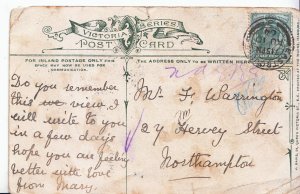 VICTORIA SERIES
POST CARD
FOR INLAND POSTAGE ONLY THIS
SPACE MAY NOW BE USED FOR
COMMUNICATION.
THE ADDRESS ONLY TO BE WRITTEN HERE
Do you remember
this view. I
will write to you
in a few days
hope you are feeling
better with love
from Mary.
Mr F. Warrington
24 Hervey Street
Northampton